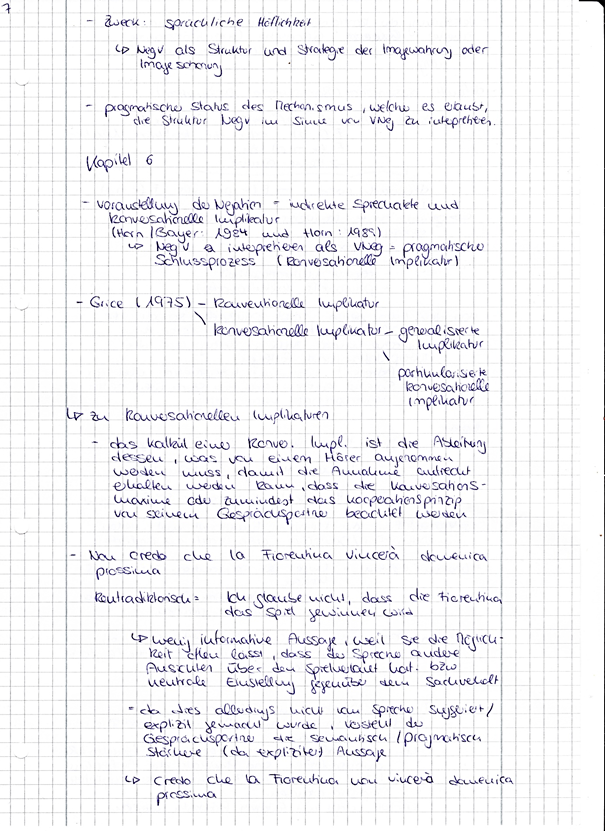 7
- Zweck: sprachliche Höflichkeit
↳ NegV als Struktur und Strategie der Imagewahrung oder
Imageschonung
- pragmatischer Status des Mechanismus, welcher es erlaubt,
die Struktur NegV im Sinne von VNeg zu interpretieren.
Kapitel 6
- Voranstellung der Negation = indirekte Sprechakte und
konversationelle Implikatur
(Horn/Bayer: 1984 und Horn: 1989)
↳ NegV zu interpretieren als VNeg = pragmatische
Schlussprozess (konversationelle Implikatur)
- Grice (1975) - Konventionelle Implikatur
\ konversationelle Implikatur - generalisierte
Implikatur
\ partikularisierte
konversationelle
Implikatur
↳ zu Konversationellen Implikaturen
- das Kalkül einer Konve. Impl. ist die Ableitung
dessen, was von einem Hörer angenommen
werden muss, damit die Annahme aufrecht
erhalten werden kann, dass die Konversations-
maxime oder zumindest das Kooperationsprinzip
von seinem Gesprächspartner beachtet werden
- Non credo che la Fiorentina vincerà domenica
prossima
Kontradiktorisch = Ich glaube nicht, dass die Fiorentina
das Spiel gewinnen wird
↳ wenig informative Aussage, weil sie die Möglich-
keit offen lässt, dass der Sprecher andere
Ansichten über den Spielverlauf hat. bzw
neutrale Einstellung gegenüber dem Sachverhalt
- da dies allerdings nicht vom Sprecher suggeriert/
explizit gemacht wurde, versteht der
Gesprächspartner die semantisch/pragmatisch
stärkere (da explizitere) Aussage
↳ credo che la Fiorentina non vincerà domenica
prossima